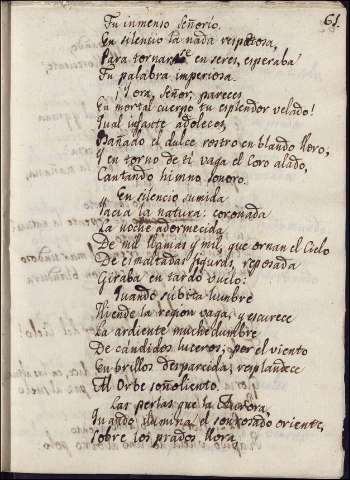 61.
Tu inmenso Señorio.
En silencio la nada respetosa,
Para tornarse en seres, esperaba
Tu palabra imperiosa.
I ora, Señor, pareces
En mortal cuerpo tu esplendor velado!
Qual infante adoleces,
Bañado el dulce rostro en blando lloro,
I en torno de ti vaga el Coro alado,
Cantando himno sonoro.
En silencio sumida
Iacia la natura: coronada
La noche adormecida
De mil llamas y mil, que ornan el Cielo
De esmaltadas figuras, reposada
Giraba en tardo vuelo:
Quando súbita lumbre
Hiende la region vaga, y escurece
La ardiente muchedumbre
De cándidos luceros; por el viento
En brillos desparcida, resplandece
Al Orbe soñoliento.
Las perlas que la Aurora,
Quando ilumina el sonrosado oriente,
Sobre los prados llora,